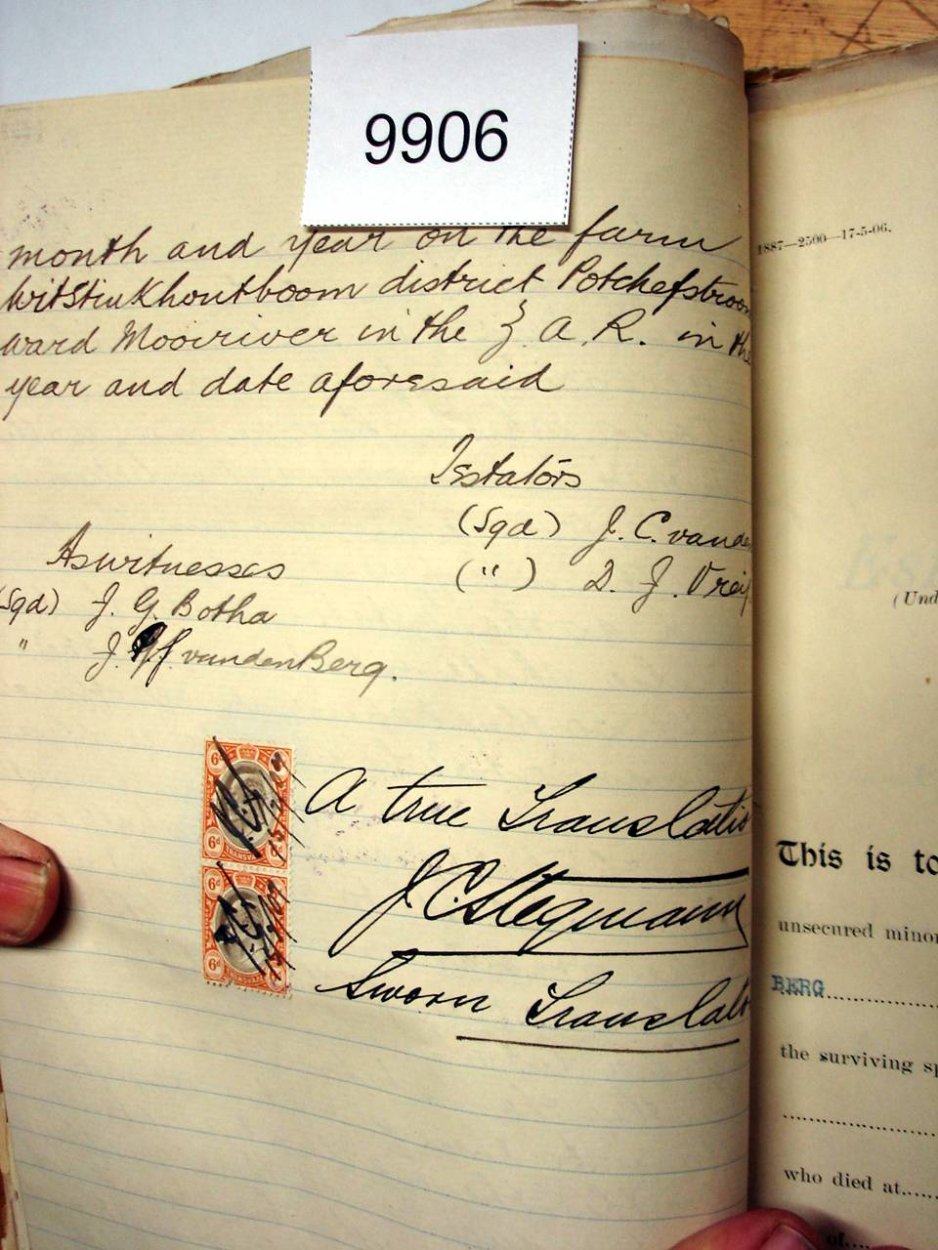 9906
month and year on the farm
WitStinkhoutboom district Potchefstroom
ward Mooiriver in the Z. A. R. in the
year and date aforesaid
Testators
(Sgd) J. C. vande
(") D. J. Vrey
As witnesses
(Sgd) J. G. Botha
" J. vandenBerg.
6d 
TRANSVAAL
6d
A true Translatio
J. C. Stegmann
Sworn Translato
1887—2500—17-5-06.
(Und
This is to
unsecured minor
BERG
the surviving sp
who died at
of